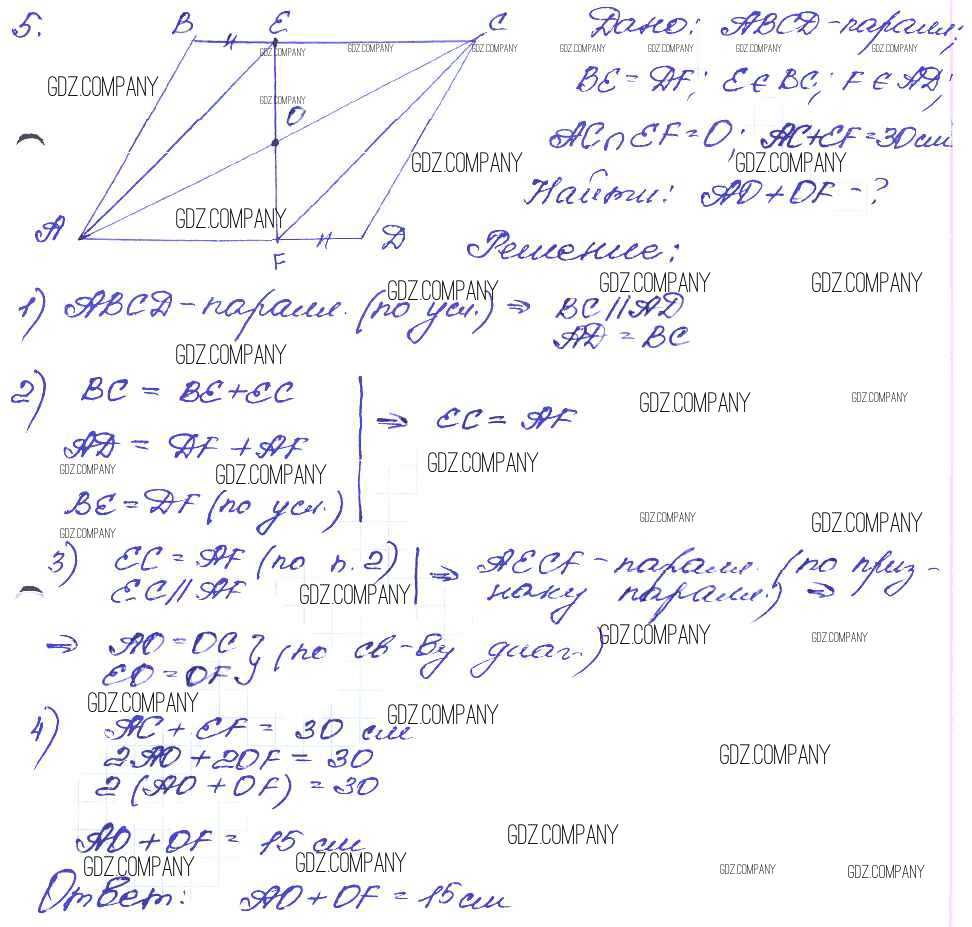 5.
B E C
O
A F D
Дано: ABCD - паралл;
BE = DF; E ∈ BC; F ∈ AD;
AC ∩ EF = O; AC + EF = 30 см
Найти: AO + OF - ?
Решение:
1) ABCD - паралл. (по усл.) ⇒ BC || AD
AD = BC
2) BC = BE + EC
AD = DF + AF
BE = DF (по усл.)
⇒ EC = AF
3) EC = AF (по п. 2)
EC || AF
⇒ AECF - паралл. (по приз-
наку паралл.) ⇒
⇒ AO = OC
EO = OF } (по св-ву диаг.)
4) AC + EF = 30 см
2AO + 2OF = 30
2 (AO + OF) = 30
AO + OF = 15 см
Ответ: AO + OF = 15 см
GDZ.COMPANY